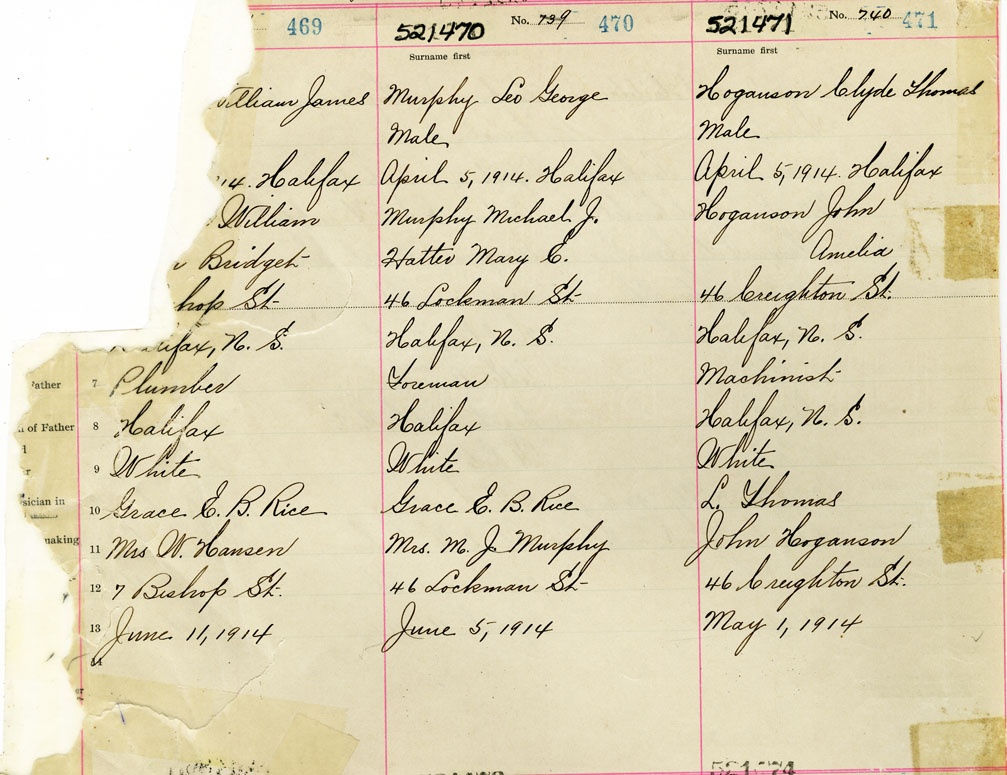 469
521470
No. 739
470
521471
No. 740
471
Surname first
Surname first
William James
Murphy Leo George
Hoganson Clyde Thomas
Male
Male
14. Halifax
April 5, 1914. Halifax
April 5, 1914. Halifax
William
Murphy Michael J.
Hoganson John
Bridget
Mary E.
Amelia
hop St.
46 Lockman St.
46 Creighton St.
Halifax, N. S.
Halifax, N. S.
Halifax, N. S.
Father
7
Plumber
Foreman
Machinist
of Father
8
Halifax
Halifax
Halifax, N. S.
9
White
White
White
sician in
10
Grace E. B. Rice
Grace E. B. Rice
L. Thomas
making
11
Mrs W. Hansen
Mrs. M. J. Murphy
John Hoganson
12
7 Bishop St.
46 Lockman St
46 Creighton St.
13
June 11, 1914
June 5, 1914
May 1, 1914
14
or